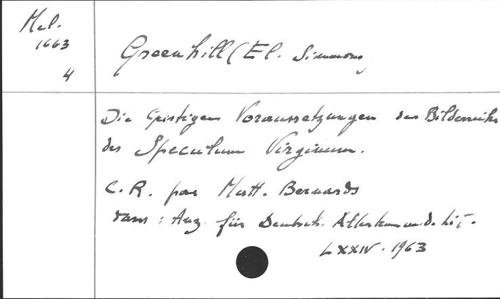 Mel.
1663
4
Greenhill (El. Simmons
Die Geistigen Voraussetzungen der Bilderreihe
des Speculum Virginum.
C. R. par Matt. Bernards
dans : Anz. für Deutsch. Altertum und. Lit.
LXXIV. 1963